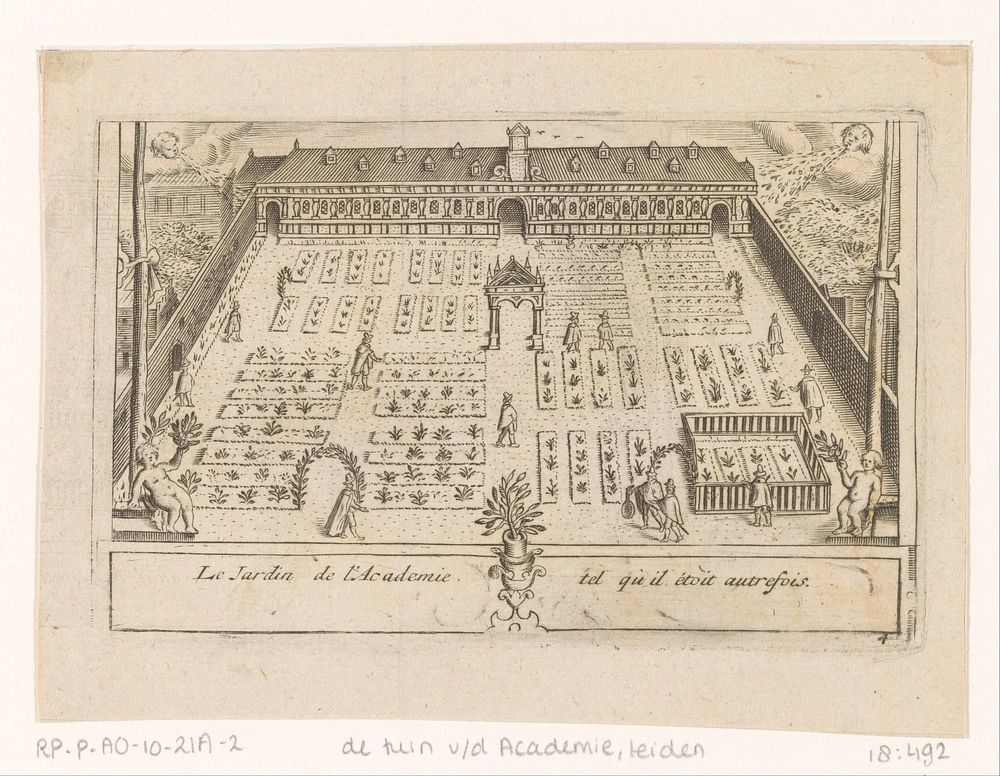 Le Jardin de l'Academie. tel qu'il étoit autrefois.
4
RP-P-AO-10-21A-2 de tuin v/d Academie, Leiden 18:492